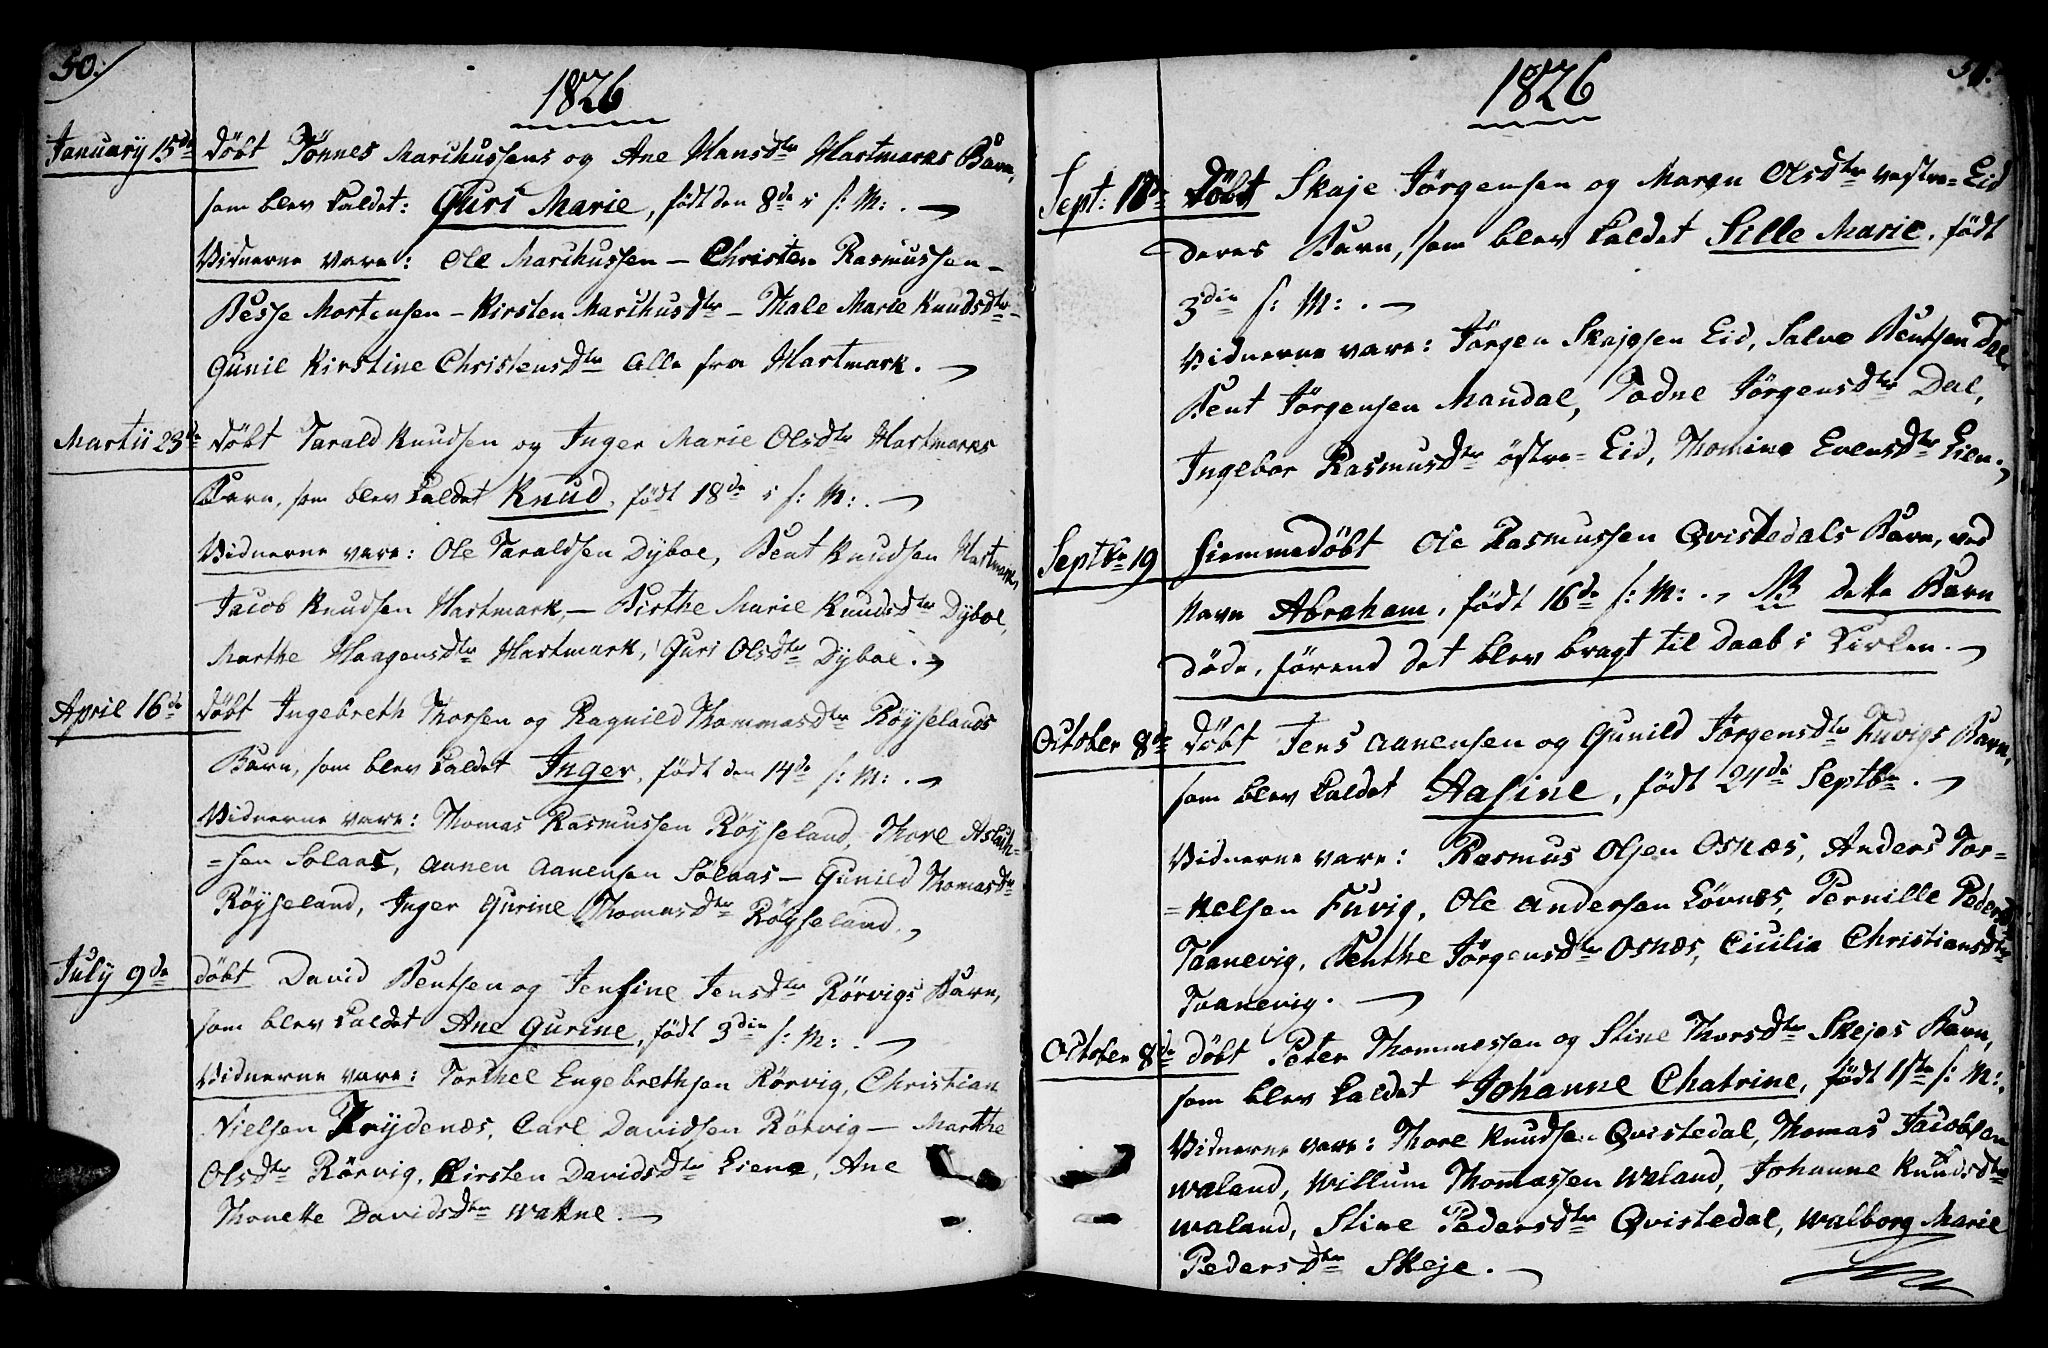 50.
1826
January 15de døbt Tønnes Marchussens og Ane Hansdtr Hartmarks Barn,
som blev kaldet: Guri Marie, født den 8de i s: M: . —
Vidnerne vare: Ole Marchussen — Christen Rasmussen —
Besse Mortensen — Kirsten Marchusdtr — Thale Marie Knudsdtr —
Gunil Kirstine Christensdtr alle fra Hartmark. —
Martii 23de døbt Tarald Knudsen og Inger Marie Olsdtr Hartmarks
Barn, som blev kaldet Knud, født 18de i s: M: . —
Vidnerne vare: Ole Taraldsen Dyboe, Bent Knudsen Hartmark,
Jacob Knudsen Hartmark, — Birthe Marie Knudsdtr Dyboe,
Marthe Haagensdtr Hartmark, Guri Olsdtr Dyboe. —
April 16de døbt Ingebreth Thorsen og Ragnild Thommasdtr Røyselands
Barn, som blev kaldet Inger, født den 14de s: M: . —
Vidnerne vare: Thomas Rasmussen Røyseland, Thore Aslach=
=sen Solaas, Aanen Aanensen Solaas — Gunild Thomasdtr
Røyseland, Inger Gurine Thomasdtr Røyseland. —
July 9de døbt David Bentsen og Jensine Jensdtr Rørvigs Barn,
som blev kaldet Ane Gurine, født 3die s: M: . —
Vidnerne vare: Torkel Engebrethsen Rørvig, Christian
Nielsen Prydenæs, Carl Davidsen Rørvig — Marthe
Olsdtr Rørvig, Kirsten Davidsdtr Liene, Ane
Thonette Davidsdtr Watne. —
51.
1826
Sept: 18de Døbt Skaje Jørgensen og Maren Olsdtr vestre=Eid
deres Barn, som blev kaldet Sille Marie, født
3die s: M: . —
Vidnerne vare: Jørgen Skajesen Eid, Salve Bentsen Dal,
Bent Jørgensen Mandal, Todne Jørgensdtr Dal,
Ingebor Rasmusdtr østre=Eid, Thomine Evensdtr Lien. —
Septbr 19 hiemmedøbt Ole Rasmussen Qvistedals Barn, ved
Navn Abraham, født 16de s: M: . — NB dette Barn
døde, førend det blev bragt til Daab i Kirken. —
October 8de døbt Jens Aanensen og Gunild Jørgensdtr Fuvigs Barn,
som blev kaldet Aasine, født 24de Septbr. —
Vidnerne vare: Rasmus Olsen Osnæs, Anders Tor=
=kelsen Fuvig, Ole Andersen Løvnæs, Pernille Pedersdtr
Taanevig, Benthe Jørgensdtr Osnæs, Cicilia Christiansdtr
Taanevig. —
October 8de døbt Peter Thommassen og Stine Thorsdtr Skejes Barn,
som blev kaldet Johanne Chatrine, født 1ste s: M: .
Vidnerne vare: Thore Knudsen Qvistedal, Thomas Jacobsen
Waland, Willum Thomassen Waland, Johanne Knudsdtr
Waland, Stine Pedersdtr Qvistedal, Walborg Marie
Pedersdtr Skeje. —